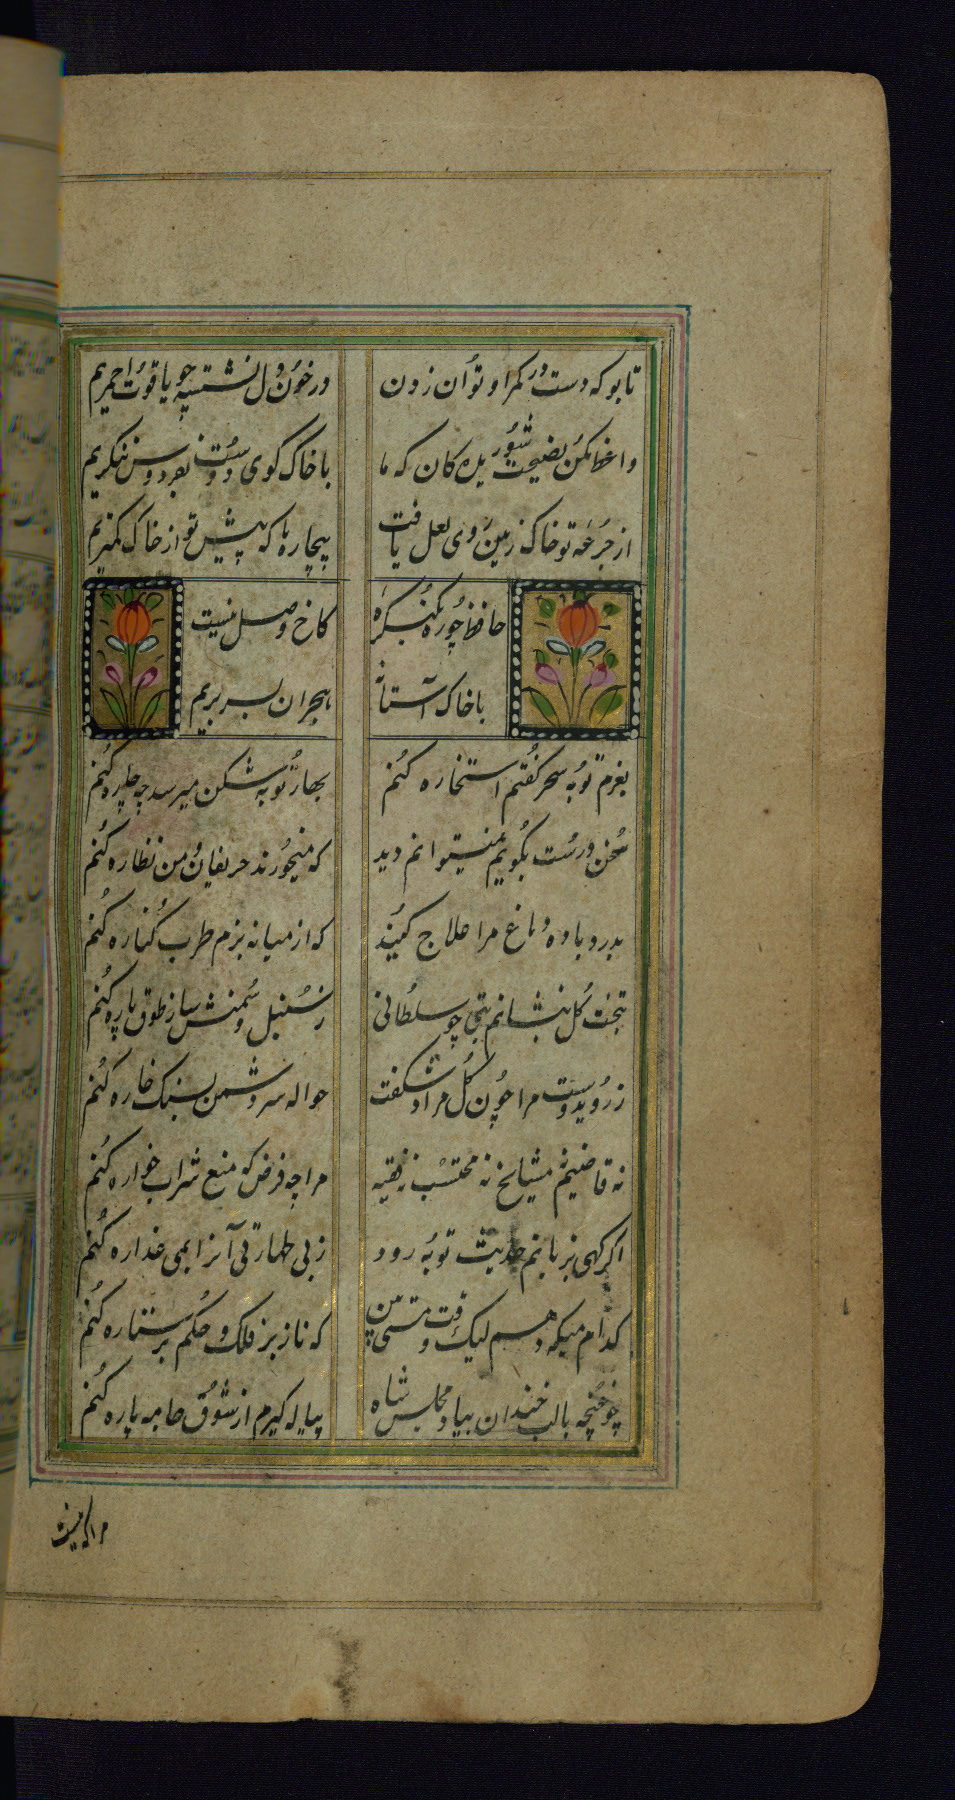 تا بو که دست در کمر او توان زدن در خون دل نشسته چو یاقوت احمریم
واعظ مکن نصیحت شوریدکان که ما با خاک کوی دوست بفردوس ننکریم
از جرعه تو خاک زمین روی لعل یافت بیچاره ما که پیش تو از خاک کمتریم
حافظ چو ره بکنکره کاخ وصل نیست
با خاک آستانه بهجران بسر بریم
بعزم توبه سحر کفتم استخاره کنم بهار توبه شکن میرسد چه چاره کنم
سخن درست بکویم نمیتوانم دید که میخورند حریفان و من نظاره کنم
بدرد باده دماغ مرا علاج کنید که از میانه بزم طرب کناره کنم
بتخت کل بنشانم بتی چو سلطانی ز سنبل و سمنش ساز طوق و یاره کنم
ز روی دوست مرا چون کل مراد شکفت حواله سر دشمن بسنک خاره کنم
نه قاضیم نه مشایخ نه محتسب نه فقیه مرا چه فرض که منع شراب خواره کنم
اکر کهی بزبانم حدیث توبه رود ز بی طهارتی آنرا بمی غراره کنم
کدام میکده‌ام لیک وقت مستی بین که ناز بر فلک و حکم بر ستاره کنم
چو غنچه با لب خندان بیاد مجلس شاه پیاله کیرم از شوق جامه پاره کنم
مرا که نیست